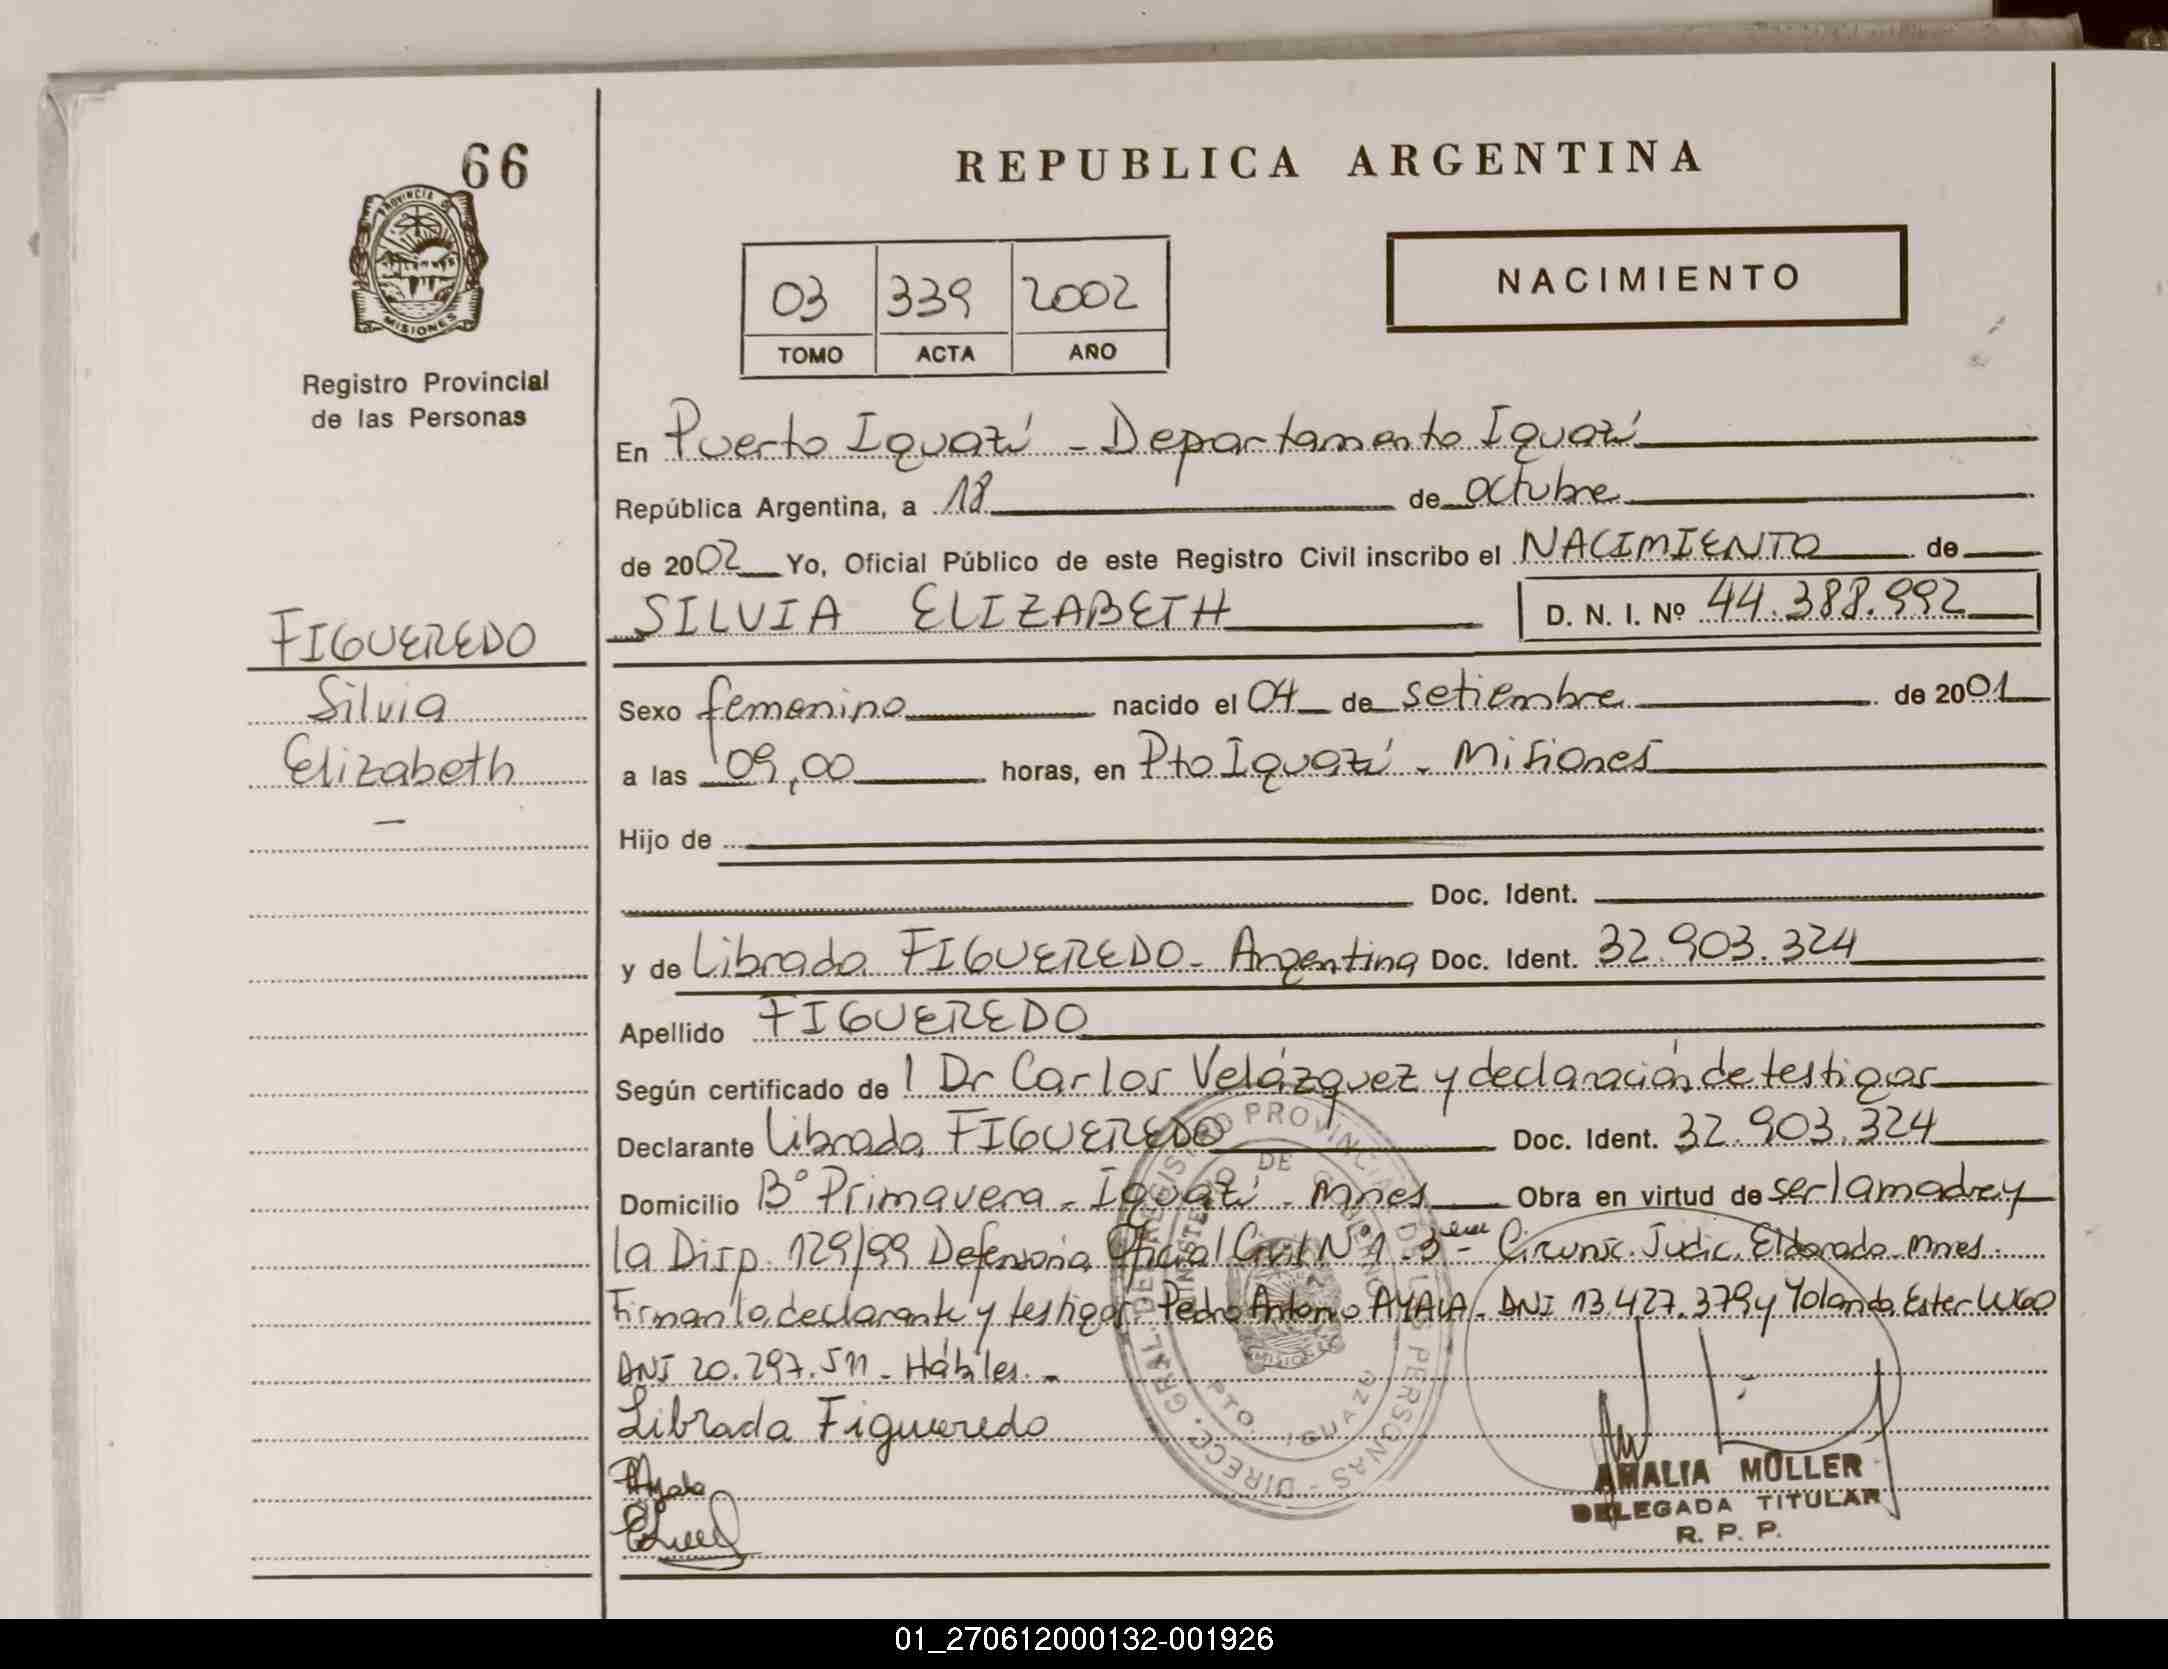 66
REPUBLICA ARGENTINA
PROVINCIA DE
MISIONES
Registro Provincial
de las Personas
NACIMIENTO
03 339 2002
TOMO ACTA AÑO
En Puerto Iguazú - Departamento Iguazú
República Argentina, a 18 de octubre
de 2002 Yo, Oficial Público de este Registro Civil inscribo el NACIMIENTO de
SILVIA ELIZABETH D. N. I. Nº 44.388.992
FIGUEREDO
Silvia
Elizabeth
Sexo femenino nacido el 04 de setiembre de 2001
a las 09,00 horas, en Pto Iguazú - Misiones
Hijo de
Doc. Ident.
y de Librada FIGUEREDO - Argentina Doc. Ident. 32.903.324
Apellido FIGUEREDO
Según certificado de l Dr Carlos Velázquez y declaración de testigos
Declarante Librada FIGUEREDO Doc. Ident. 32.903.324
Domicilio Bº Primavera - Iguazú - Mnes Obra en virtud de ser la madre y
la Disp. 129/99 Defensoría Oficial Civil Nº 1 - 3era - Circunsc. Judic. Eldorado Mnes.
Firman la declarante y testigos: Pedro Antonio AYALA - DNI 13.427.379 y Yolanda Ester LUGO
DNI 20.297.511 - Hábiles. -
Librada Figueredo
Ayala
DIRECC. GRAL. DE REGISTRO PROVINCIAL DE LAS PERSONAS
MINISTERIO DE GOBIERNO
MISIONES
PTO. IGUAZU
AMALIA MÜLLER
DELEGADA TITULAR
R. P. P.
01_270612000132-001926